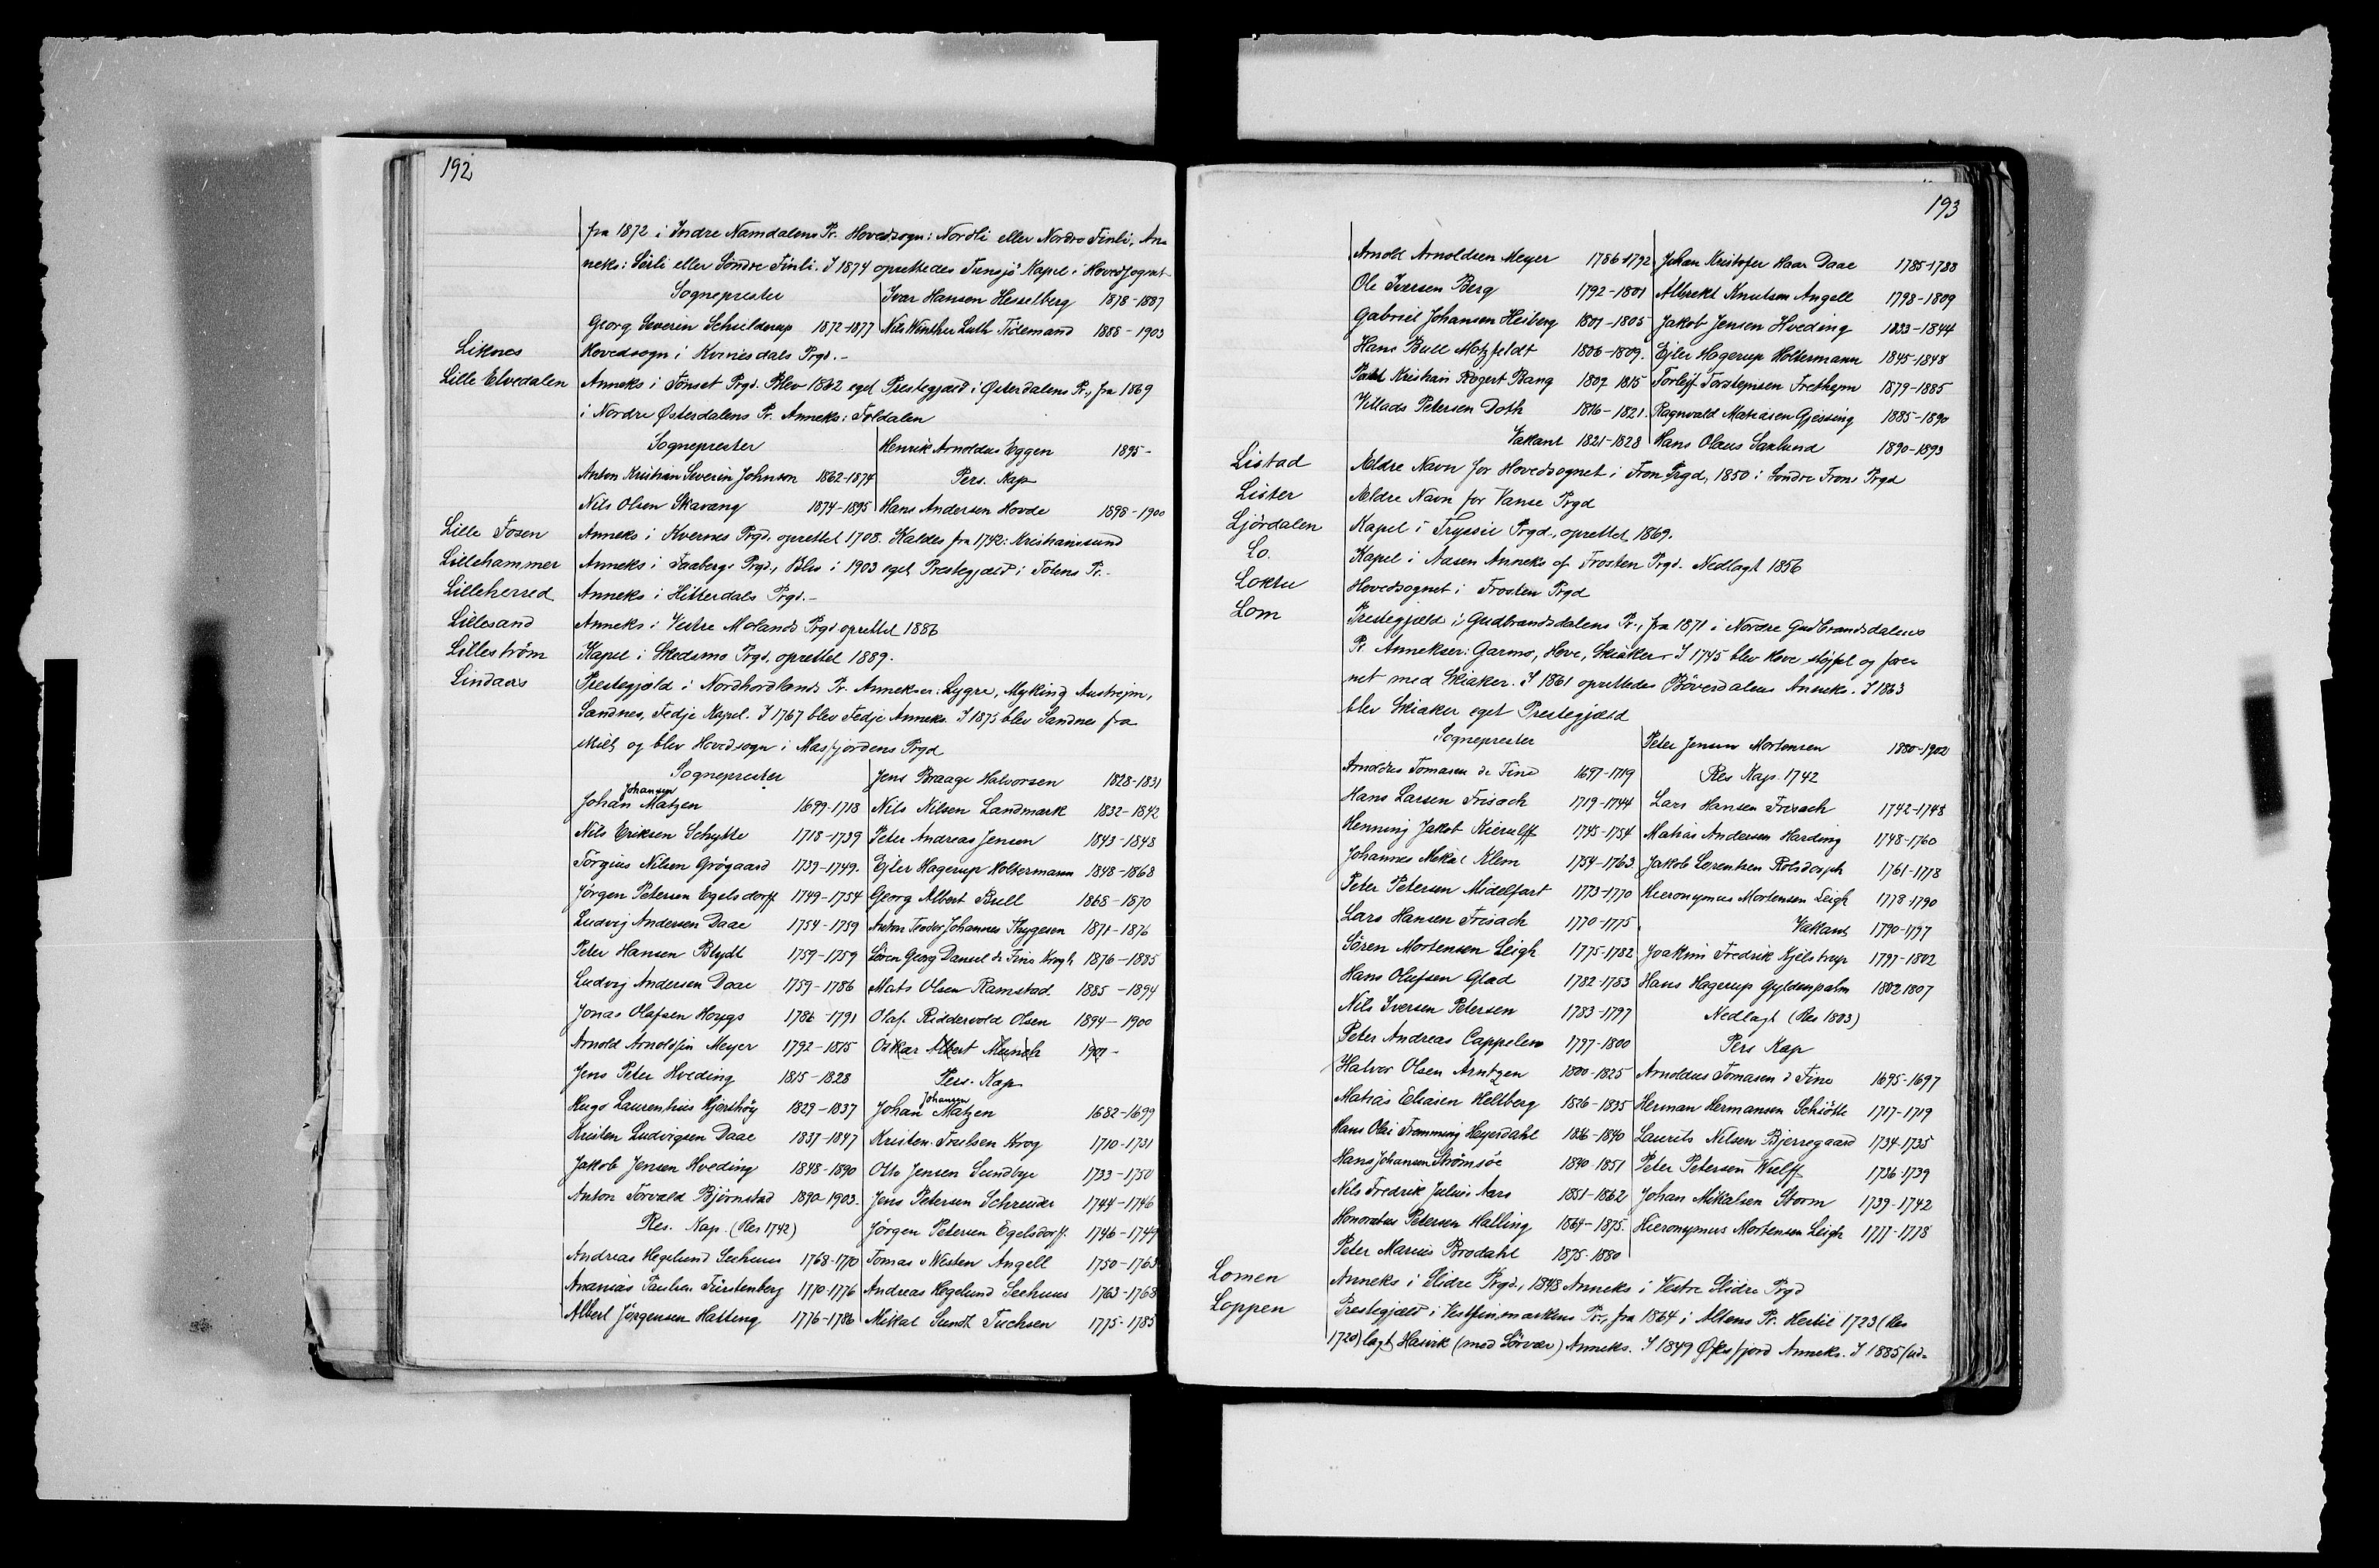 192
fra 1872 i Indre Namdalens Pr. Hovedsogn: Nordli eller Nordre Finli, An-
neks: Sörli eller Söndre Finli. I 1874 oprettedes Tunsjö Kapel i Hovedsognet
Sogneprester
Georg Severin Schielderup 1872-1877
Ivar Hansen Hesselberg 1878-1887
Nils Winther Luth Tidemand 1888-1903
Liknes Hovedsogn i Kvinesdals Prgd.-
Lille Elvedalen Anneks i Tönset Prgd. Blev 1862 eget Prestegjæld i Østerdalens Pr., fra 1869
i Nordre Østerdalens Pr. Anneks: Foldalen
Sogneprester
Anton Kristian Severin Johnson 1862-1874
Nils Olsen Skavang 1874-1895
Henrik Arnoldus Eggen 1895-
Pers. Kap
Hans Andersen Hovde 1898-1900
Lille Fosen Anneks i Kvernes Prgd. oprettet 1708. Kaldes fra 1742: Kristianssund
Lillehammer Anneks i Faabergs Prgd., Blev i 1903 eget Prestegjæld i Totens Pr.-
Lilleherred Anneks i Hitterdals Prgd.-
Lillesand Anneks i Vestre Molands Prgd oprettet 1886
Lilleström Kapel i Skedsmo Prgd. oprettet 1889.
Lindaas Prestegjæld i Nordhordlands Pr. Annekser: Lygre, Myking Austrejm,
Sandnes, Fedje Kapel. I 1767 blev Fedje Anneks. I 1875 blev Sandnes fra
skilt og blev Hovedsogn i Masfjordens Prgd
Sogneprester
Johan Johansen Matzen 1699-1718
Nils Eriksen Schytte 1718-1739
Torgius Nilsen Grögaard 1739-1749.
Jörgen Petersen Egelsdorff 1749-1754
Ludvig Andersen Daae 1754-1759
Peter Hansen Blydt 1759-1759
Ludvig Andersen Daae 1759-1786
Jonas Olafsen Hoygs 1786-1791
Arnold Arnoldsen Meyer 1792-1815
Jens Peter Hveding 1815-1828
Hugo Laurentius Hjorthöy 1829-1837
Kristen Ludvigsen Daae 1837-1847
Jakob Jensen Hveding 1848-1890
Anton Torvald Björnstad 1890-1903.
Res. Kap. (Res 1742)
Andreas Hegelund Seehuus 1768-1770
Ananias Paulsen Fürstenberg 1770-1776
Albert Jörgensen Hatting 1776-1786
Jens Braage Halvorsen 1828-1831
Nils Nilsen Landmark 1832-1842
Peter Andreas Jensen 1843-1848
Ejler Hagerup Holtermann 1848-1868
Georg Albert Bull 1868-1870
Anton Teodor Johannes Thygesen 1871-1876
Sören Georg Daniel de Fine Krogh 1876-1885
Mats Olsen Ramstad 1885-1894
Olaf Riddervold Olsen 1894-1900
Oskar Albert Munch 1901-
Pers. Kap
Johan Johansen Matzen 1682-1699
Kristen Truelsen Krog 1710-1731
Otto Jensen Sundbye 1733-1750
Jens Petersen Schreuder 1744-1746
Jörgen Petersen Egelsdorff. 1746-1749
Tomas v Westen Angell 1750-1763
Andreas Hegelund Seehuus 1763-1768
Mikal Sundt Tuchsen 1775-1785
193
Arnold Arnoldsen Meyer 1786-1792
Ole Iversen Berg 1792-1801
Gabriel Johansen Heiberg 1801-1805
Hans Bull Motzfeldt 1806-1809.
Kristian Rogert Bang 1807 1815
Villads Petersen Doth 1816-1821.
Vakant 1821-1828
Johan Kristofer Haar Daae 1785-1788
Albrekt Knutsen Angell 1798-1809
Jakob Jensen Hveding 1833-1844
Ejler Hagerup Holtermann 1845-1848
Torleif Torstensen Fretheym 1879-1885
Ragnvald Matiasen Gjessing 1885-1890
Hans Olaus Saxlund 1890-1893
Listad Ældre Navn for Hovedsognet i Fron Prgd, 1850 i Söndre Frons Prgd
Lister Ældre Navn for Vanse Prgd
Ljördalen Kapel i Trysil Prgd., oprettet 1869.
Lo. Kapel i Aasen Anneks af Frosten Prgd. Nedlagt 1856
Loktu Hovedsognet i Frosten Prgd
Lom Prestegjæld i Gudbrandsdalens Pr., fra 1871 i Nordre Gudbrandsdalens
Pr. Annekser: Garmo, Hove, Skiaker. I 1745 blev Hove sløjfet og fore-
net med Skiaker. I 1861 oprettedes Böverdalens Anneks. I 1863
blev Skiaker eget Prestegjæld
Sogneprester
Arnoldus Tomasen de Fine 1697-1719
Hans Larsen Frisach 1719-1744
Henning Jakob Kierulff 1745-1754
Johannes Mikal Klem 1754-1763
Peter Petersen Midelfart 1773-1770
Lars Hansen Frisach 1770-1775
Sören Mortensen Leigh 1775-1782
Hans Olufsen Glad 1782-1783
Nils Iversen Petersen 1783-1797
Peter Andreas Cappelen 1797-1800
Halvor Olsen Arntzen 1800-1825
Matias Eliasen Heltberg 1826-1835
Hans Olai Flemming Heyerdahl 1836-1840
Hans Johansen Strömsöe 1840-1851
Nils Fredrik Julius Aars 1851-1862
Honoratus Petersen Halling 1864-1875.
Peter Marius Brodahl 1875-1880
Peter Jensen Mortensen 1880-1902
Res Kap. 1742
Lars Hansen Frisach 1742-1748
Matias Andersen Harding 1748-1760
Jakob Lorentsen Rolsdorph 1761-1778
Hieronymus Mortensen Leigh 1778-1790
Vakant 1790-1797
Joakim Fredrik Kjelstrup 1797-1802
Hans Hagerup Gyldenpalm 1802 1807
Nedlagt (Res 1803)
Pers Kap
Arnoldus Tomasen d Fine 1695-1697
Herman Hermansen Schiötte 1717-1719
Laurits Nilsen Bjerregaard 1734-1735
Peter Petersen Wulff 1736-1739
Johan Mikalsen Storm 1739-1742
Hieronymus Mortensen Leigh 1777-1778
Lomen Anneks i Slidre Prgd., 1848 Anneks i Vestre Slidre Prgd
Loppen Prestegjæld i Vestfinmarkens Pr., fra 1864 i Altens Pr. Hertil 1723 (Res
1720) lagt Hasvik (med Sörvær) Anneks. I 1849 Øksfjord Anneks. I 1885 (ud-